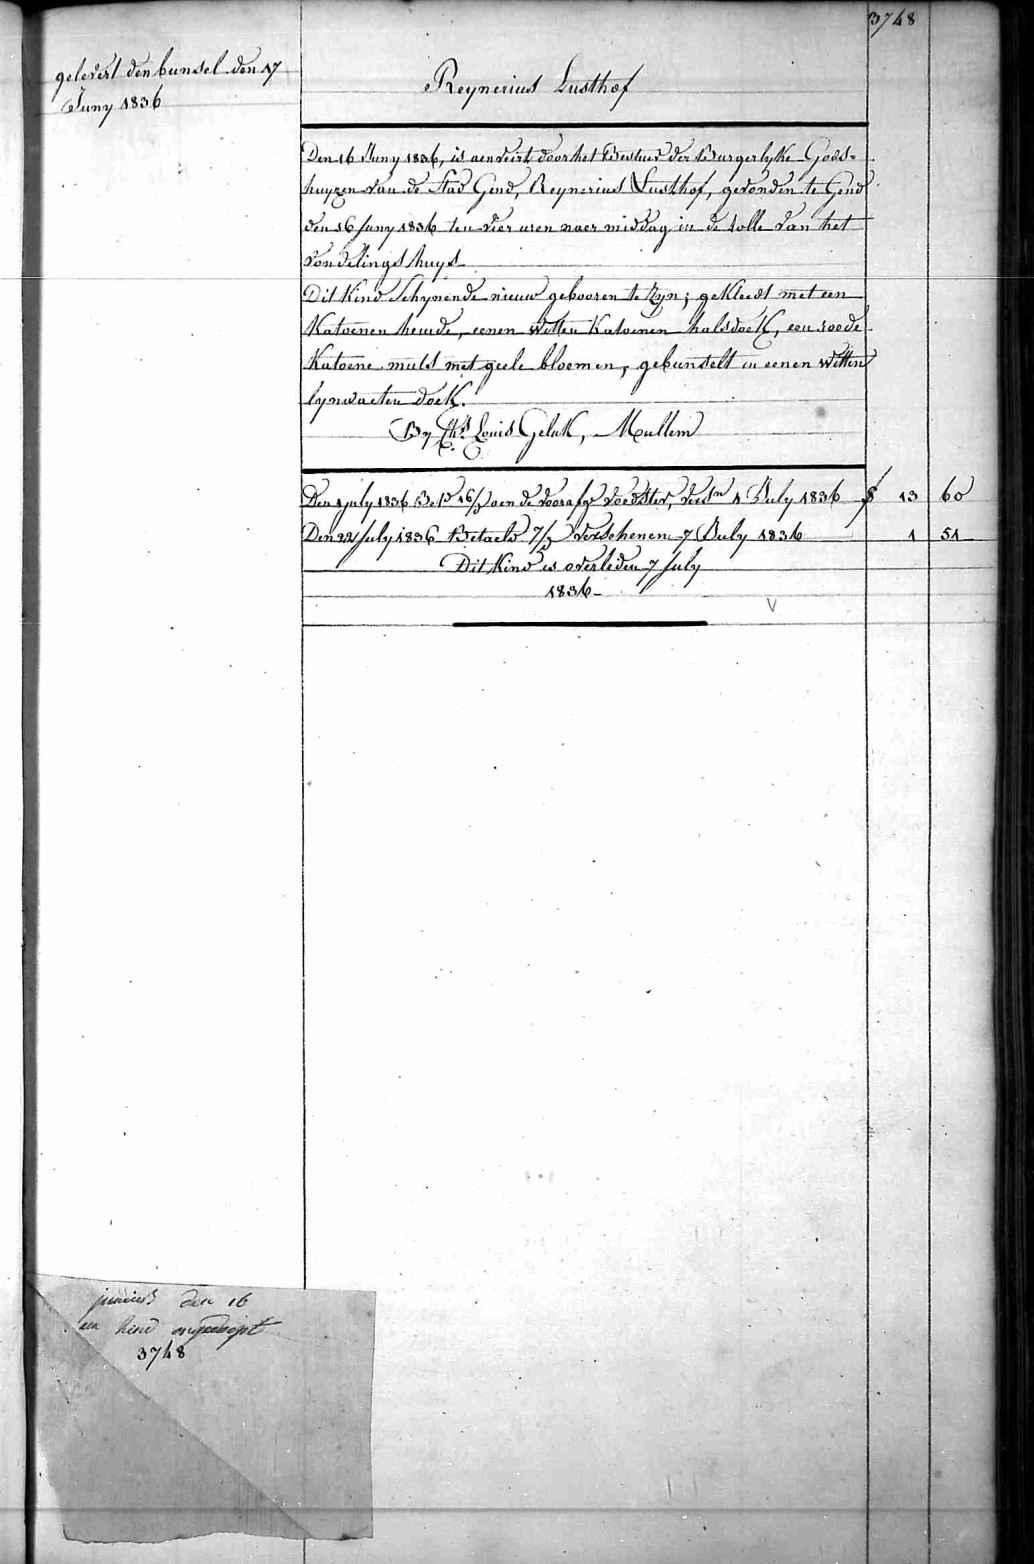 3748
gelevert den bunsel den 17
Juny 1836
Reynerius Lusthof
Den 16 Juny 1836, is aenveirt door het Bestuer der Burgerlyke Gods-
huyzen van de Stad Gend, Reynerius Lusthof, gevonden te Gend
den 16 Juny 1836 ten vier uren naer middag in de rolle van het
vondelingshuys
Dit Kind Schynende nieuw gebooren te Zyn; gekleedt met een
Katoenen hemde, eenen witten Katoenen halsdoek, een roode
Katoene muts met geele bloemen, gebunselt in eenen witten
lynwaeten doek.
By Ch.s Louis Geluk, Mullem
Den 4 July 1836 aen de voedster, 1 July 1836 f 13 60
Den 22 July 1836 Betaeld 7/3 verschenen 7 July 1836 1 51
Dit Kind is overleden 7 July
1836
den 16
een kind ongedoopt
3748